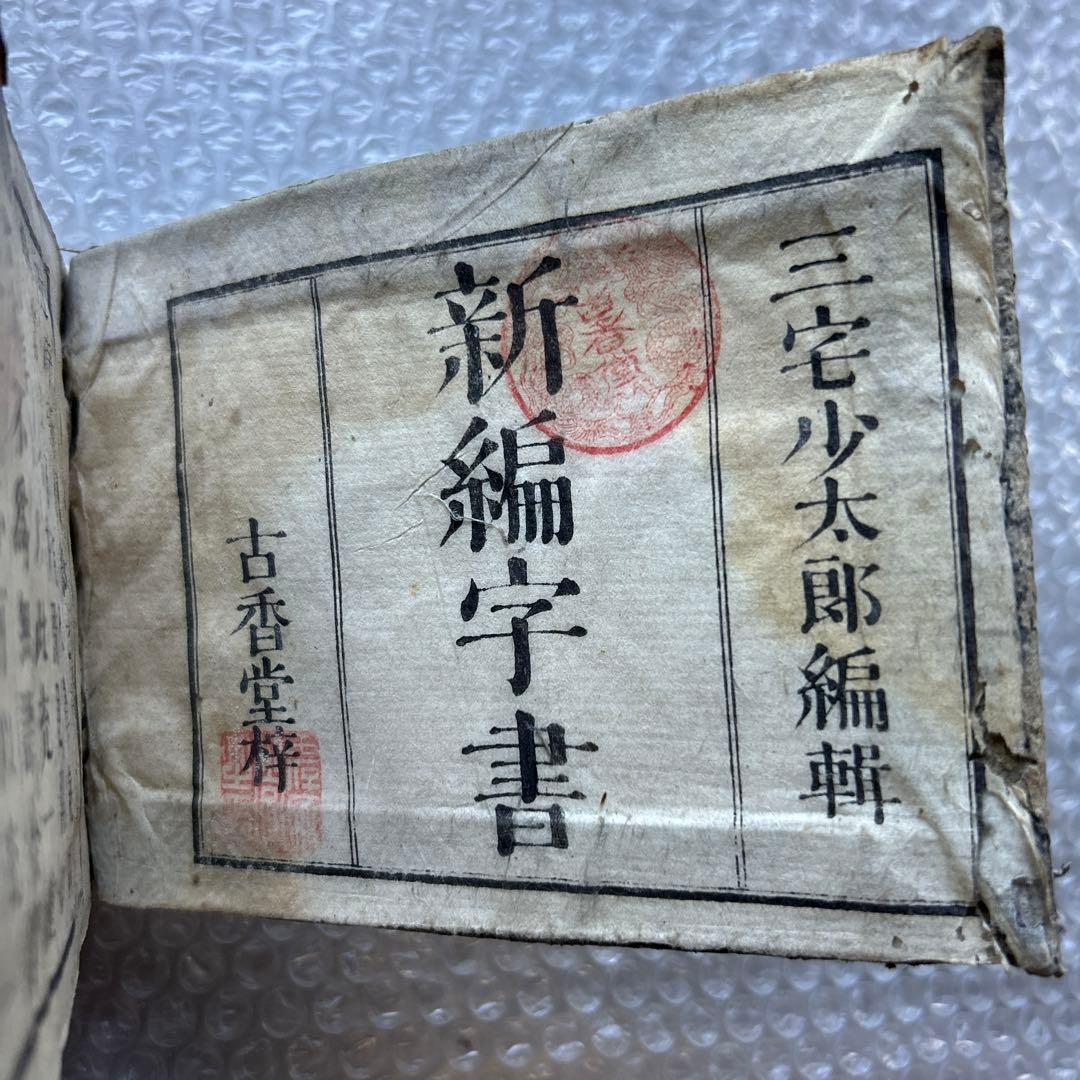 三宅少太郎編輯
新編字書
古香堂梓